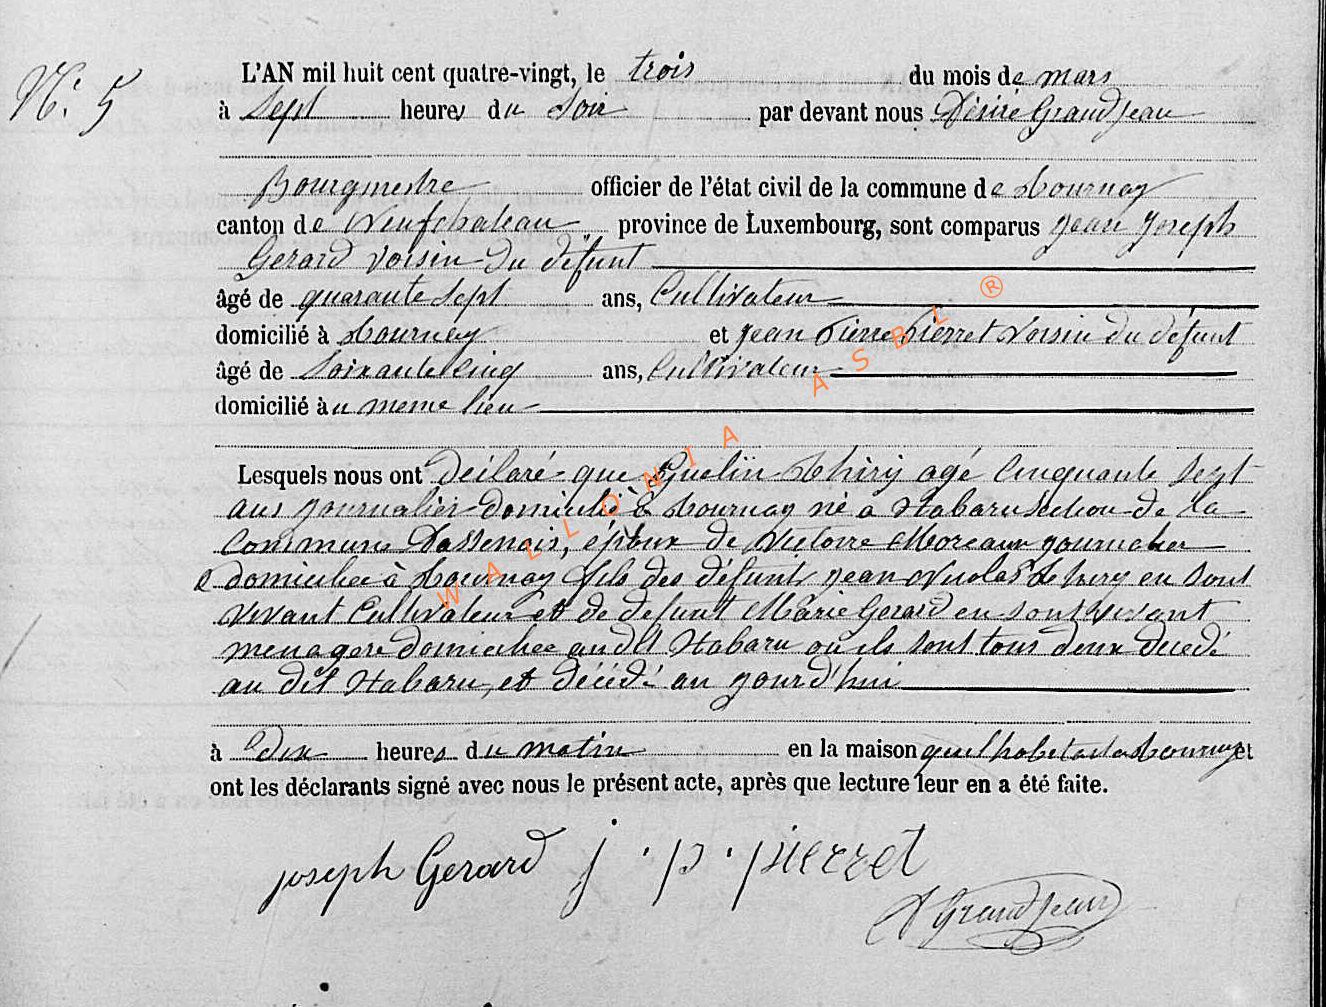 N° 5
L'AN mil huit cent quatre-vingt, le trois du mois de mars
à sept heures du Soir par devant nous Désiré Grandjean
Bourgmestre officier de l'état civil de la commune de tournay
canton de Neufchateau province de Luxembourg, sont comparus jean joseph
Gerard voisin du défunt
âgé de quarante sept ans, Cultivateur
domicilié à tournay et jean Pierre Pierret voisin du défunt
âgé de Soixante Cinq ans, Cultivateur
domicilié au meme lieu
Lesquels nous ont déclaré que Guelin thiry agé Cinquante Sept
ans journalier domicilié à tournay né a Habaru Section de la
Commune Dassenois, époux de Victoire Moreaux
domiciliee à tournay fils des défunts jean Nicolas thiry en sont
vivant Cultivateur et de defunt Marie Gerard en son vivant
menagere domiciliee au dit Habaru ou ils sont tous deux décédé
au dit Habaru, et décédé au jourd'hui
à dix heures du matin en la maison quil habitait a tournay et
ont les déclarants signé avec nous le présent acte, après que lecture leur en a été faite.
joseph Gerard j. p. pierret
D Grandjean
WALLONIA ASBL ®